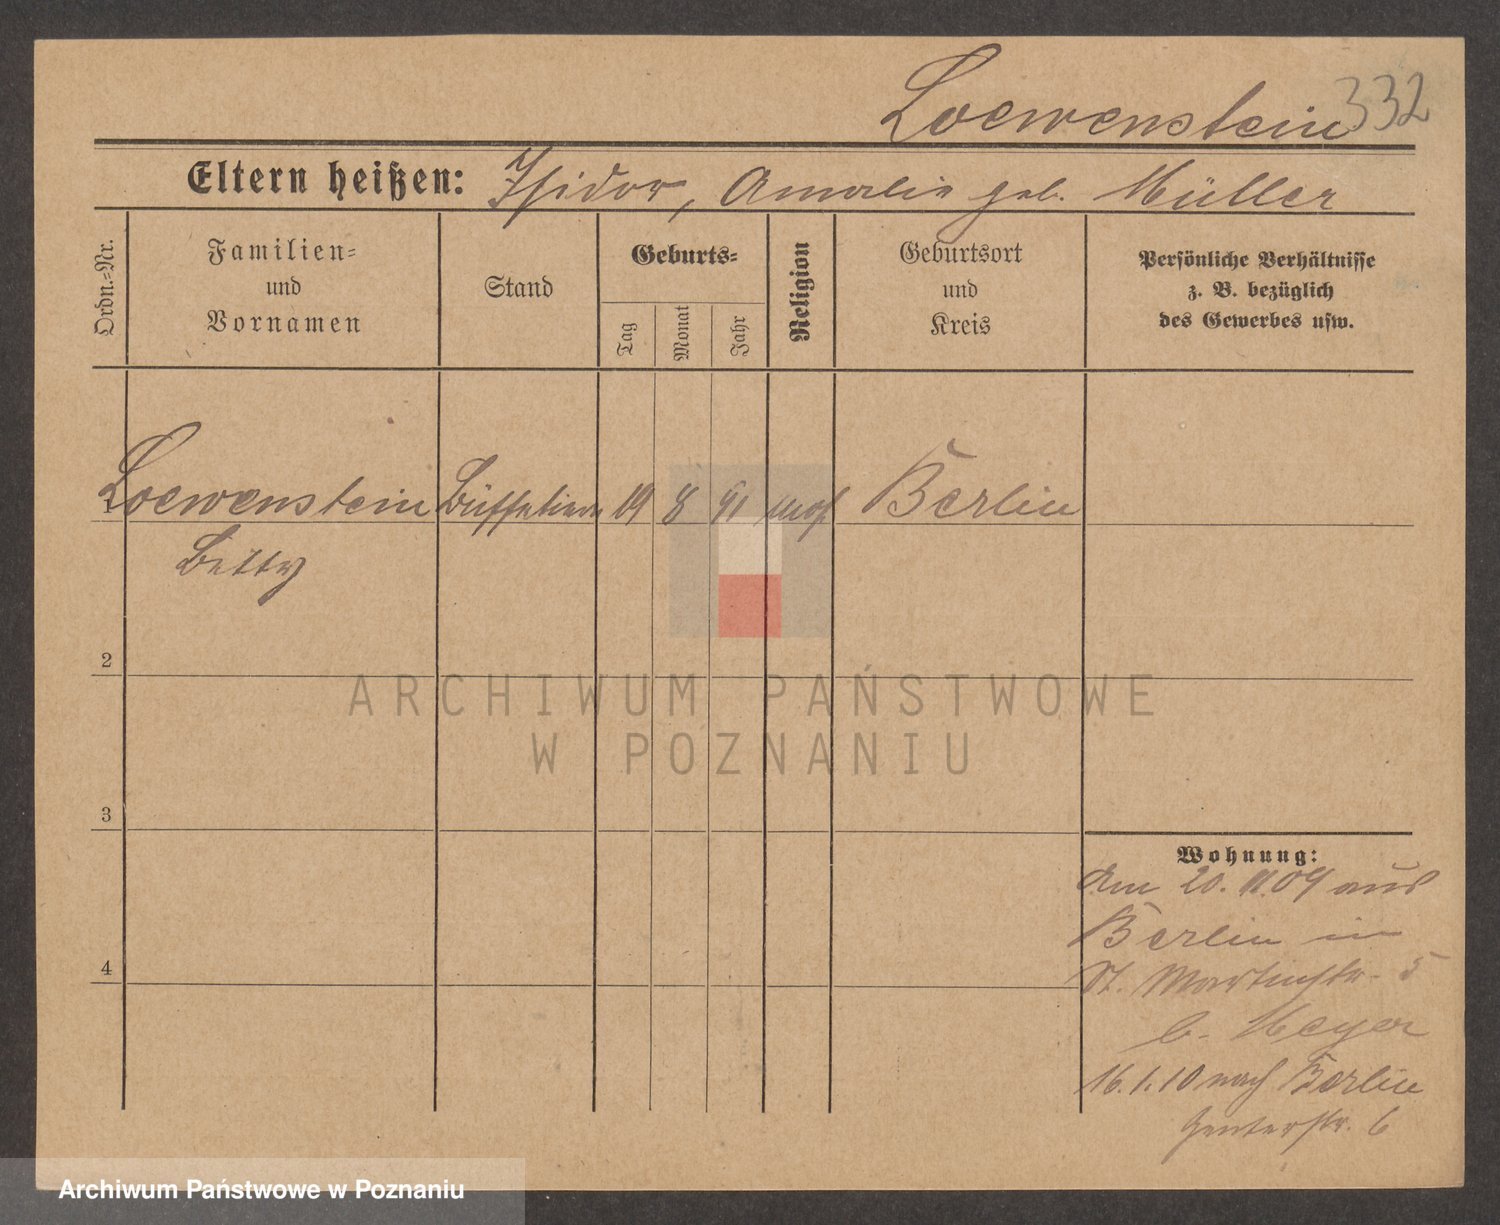 Loewenstein 332
Eltern heißen: Isidor, Amalie geb. Müller
Ordn.=Nr.
Familien=
und
Vornamen
Stand
Geburts=
Tag
Monat
Jahr
Religion
Geburtsort
und
Kreis
Persönliche Verhältnisse
z. B. bezüglich
des Gewerbes usw.
1 Loewenstein Büffetiere 19 8 91 mos Berlin
Betty
2
3
4
Wohnung:
Am 20. 11 09 aus
Berlin in
St. Martinstr. 5
b. Meyer
16.1.10 nach Berlin
Genterstr. 6
ARCHIWUM PAŃSTWOWE
W POZNANIU
Archiwum Państwowe w Poznaniu